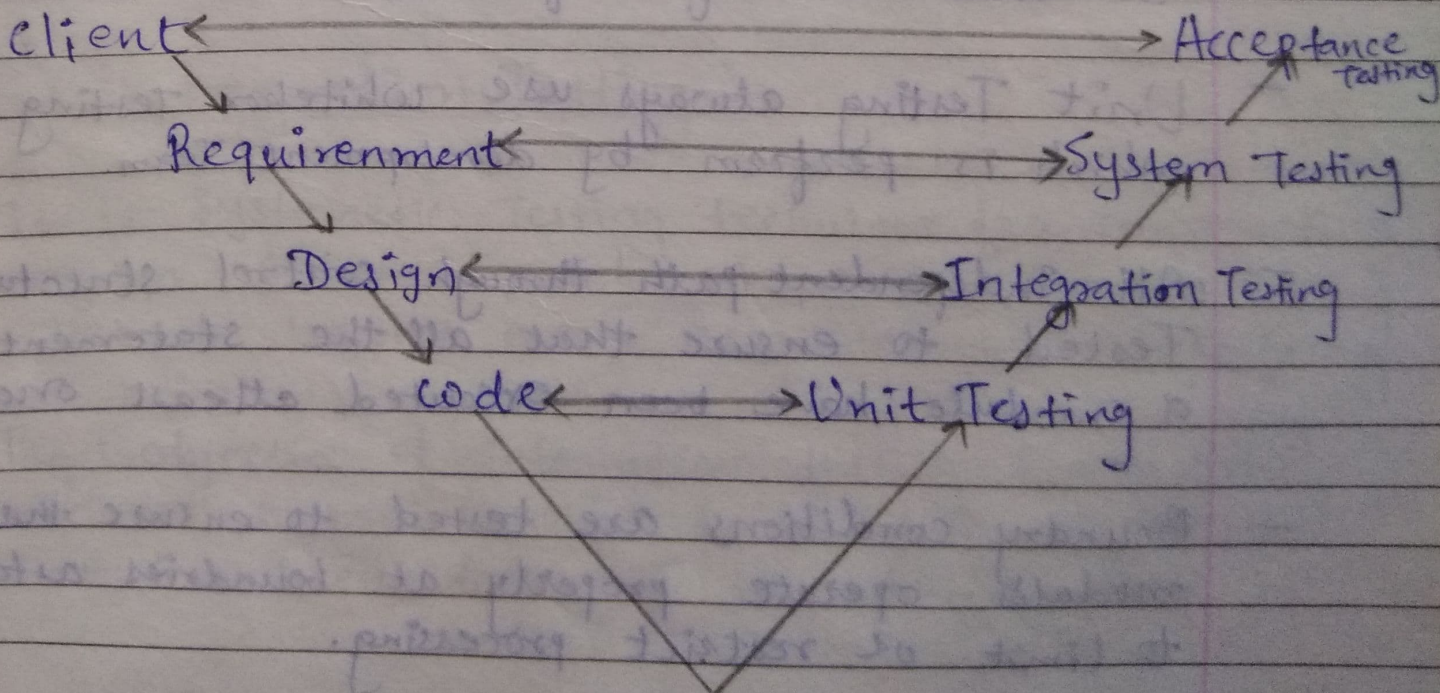 Client Acceptance Testing
Requirenment System Testing
Design Integration Testing
code Unit Testing